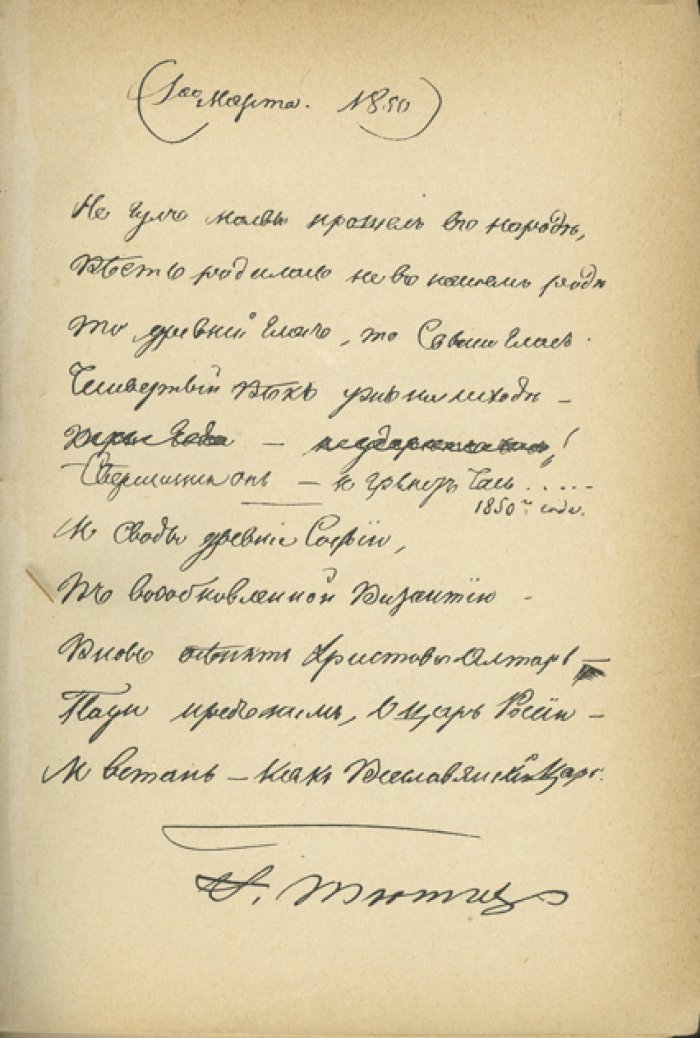 (1го Марта. 1850)
Не гулъ молвы прошелъ въ народѣ,
Вѣсть родилась не въ нашемъ родѣ
То древній гласъ, то Свыше гласъ.
Четвертый Вѣкъ ужъ на исходѣ –
Свершится онъ – и грянетъ Часъ.....
1850го года.
И Своды древніе Софіи,
Въ возобновленной Византіи –
Вновь осѣнятъ Христовъ Олтарь –
Пади предъ нимъ, о Царь Россіи –
И встань – какъ Всеславянскій Царь.
Ѳ. Тютчевъ